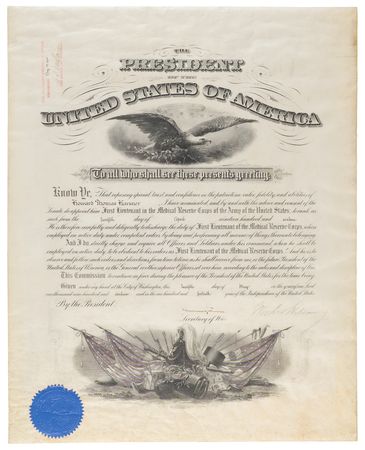 THE
PRESIDENT
OF THE
UNITED STATES OF AMERICA
To all who shall see these presents greeting:
Know Ye, That reposing special trust and confidence in the patriotism, valor, fidelity and abilities of
Howard Thomas I have nominated, and by and with the advice and consent of the
Senate do appoint him First Lieutenant in the Medical Reserve Corps of the Army of the United States, to rank as
such from the day of April nineteen hundred and
He is therefore carefully and diligently to discharge the duty of First Lieutenant of the Medical Reserve Corps, when
employed on active duty under competent orders by doing and performing all manner of things thereunto belonging.
And I do strictly charge and require all Officers and Soldiers under his command when he shall be
employed on active duty to be obedient to his orders as First Lieutenant of the Medical Reserve Corps. And he is to
observe and follow such orders and directions from time to time as he shall receive from me, or the future President of the
United States of America, or the General or other superior Officers set over him, according to the rules and discipline of War.
This Commission to continue in force during the pleasure of the President of the United States, for the time being.
Given under my hand at the City of Washington, this day of May in the year of our Lord
one thousand nine hundred and and in the one hundred and year of the Independence of the United States.
By the President:
Secretary of War.